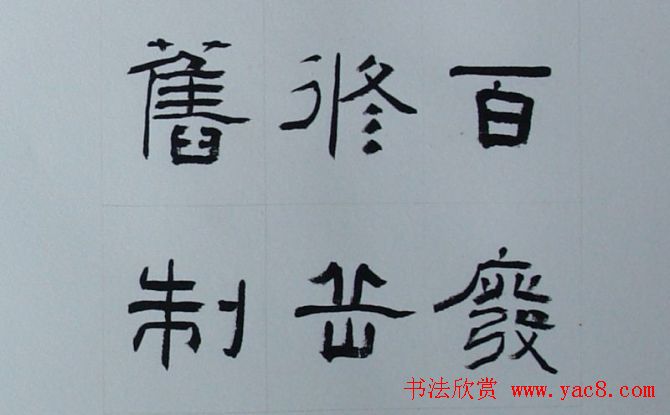 百廢
修岳
舊制
书法欣赏 www.yac8.com